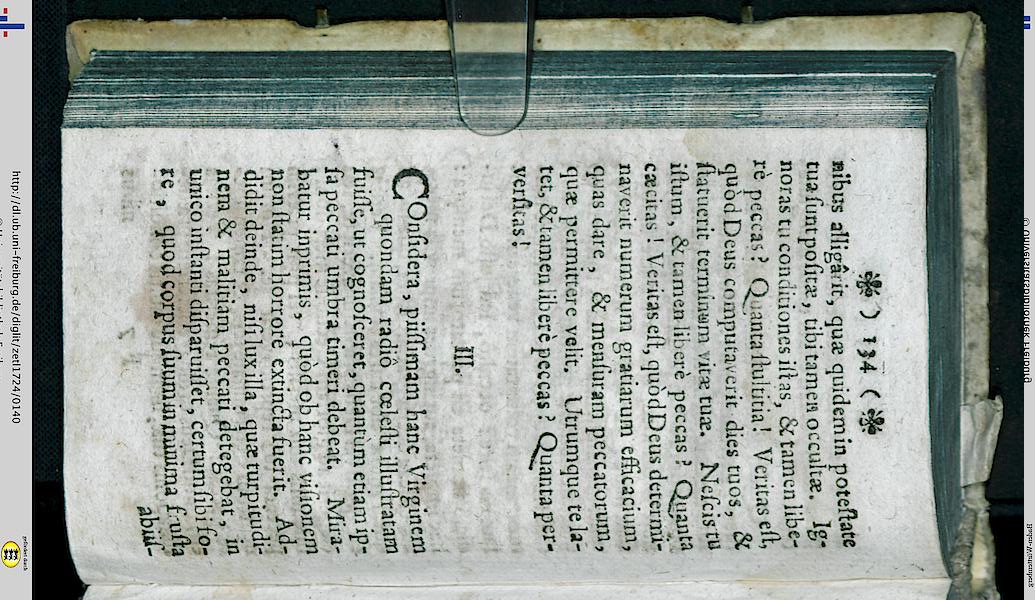 ❀ ) 134 ( ❀
nibus alligârit, quæ quidem in potestate
tua sunt positæ, tibi tamen occultæ. Ig-
noras tu conditiones istas, & tamen libe-
rè peccas? Quanta stultitia! Veritas est,
quòd Deus computaverit dies tuos, &
statuerit terminum vitæ tuæ. Nescis tu
istum, & tamen liberè peccas? Quanta
cæcitas! Veritas est, quòd Deus determi-
naverit numerum gratiarum efficacium,
quas dare, & mensuram peccatorum,
quæ permittere velit. Utrumque te la-
tet, & tamen liberè peccas? Quanta per-
versitas!
III.
COnsidera, piissimam hanc Virginem
quondam radiô cœlesti illustratam
fuisse, ut cognosceret, quantùm etiam ip-
sa peccati umbra timeri debeat. Mira-
batur inprimis, quòd ob hanc visionem
non statim horrore extincta fuerit. Ad-
didit deinde, nisi lux illa, quæ turpitudi-
nem & malitiam peccati detegebat, in
unico instanti disparuisset, certum sibi fo-
re, quod corpus suum in minima frusta
abiis-
http://dl.ub.uni-freiburg.de/diglit/zetl1724/0140
gefördert durch